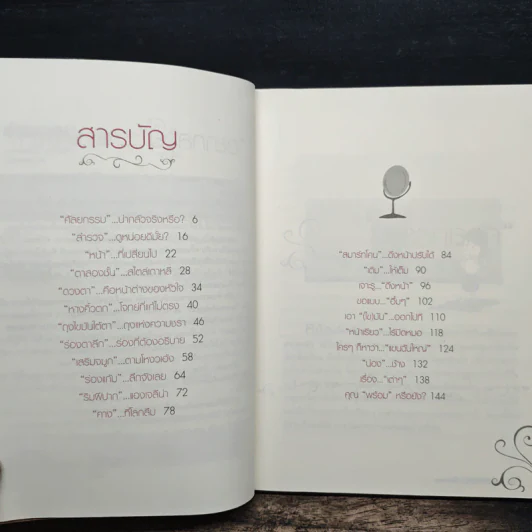 สารบัญ
"ศัลยกรรม"...น่ากลัวจริงหรือ? 6
"สำรวจ"...ดูหน่อยดีมั้ย? 16
"หน้า"...ที่เปลี่ยนไป 22
"ตาสองชั้น"...สไตล์เกาหลี 28
"ดวงตา"...คือหน้าต่างของหัวใจ 34
"หางคิ้วตก"...โจทย์ที่แก้ไม่ตรง 40
"ถุงไขมันใต้ตา"...ถุงแห่งความชรา 46
"ร่องตาลึก"...ร่องที่ต้องอธิบาย 52
"เสริมจมูก"...ตามโหงวเฮ้ง 58
"ร่องแก้ม"...ลึกจังเลย 64
"ริมฝีปาก"...แองเจลิน่า 72
"คาง"...ที่โลกลืม 78
"สมาร์ทโคน"...ดึงหน้าปรับได้ 84
"เติม"...ให้เต็ม 90
เจาะรู..."ดึงหน้า" 96
ขอแบบ..."อึ๋มๆ" 102
เอา "ไขมัน"...ออกไปที 110
"หน้าเรียว"...ไร้มีดหมอ 118
ใครๆ ก็หาว่า..."แขนฉันใหญ่" 124
"น่อง"...ช้าง 132
เรื่อง..."เต่าๆ" 138
คุณ "พร้อม" หรือยัง? 144